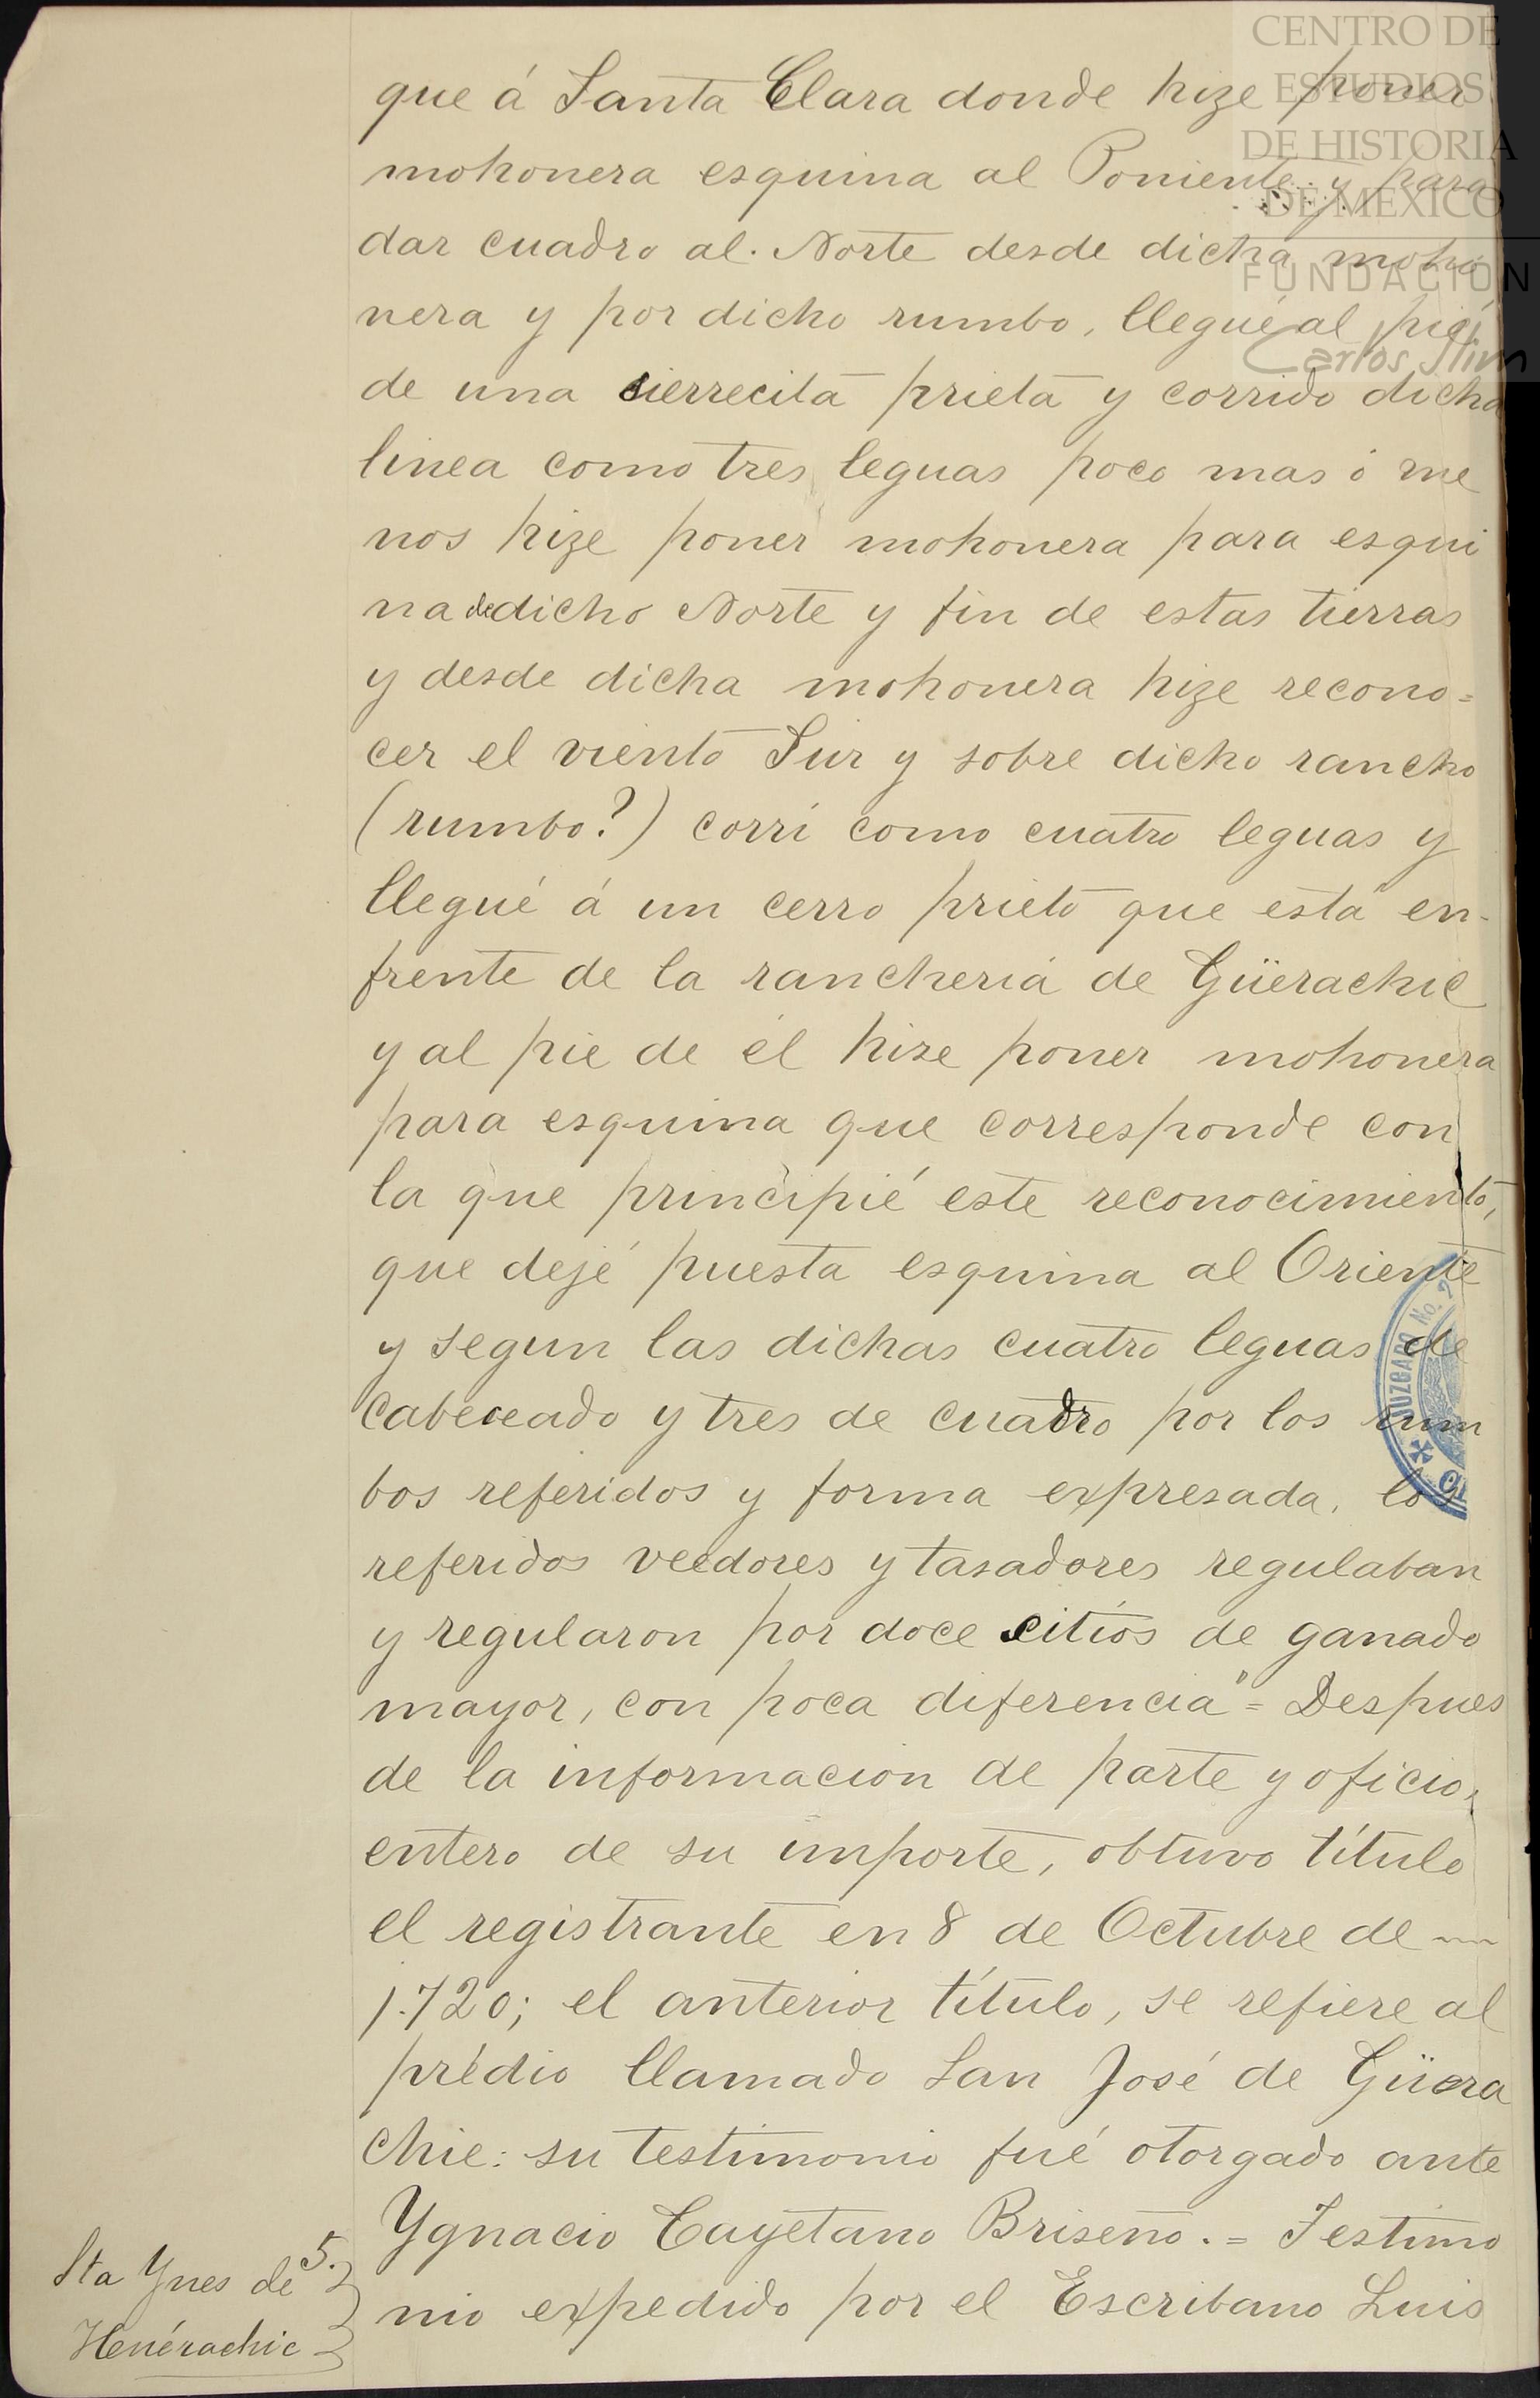 CENTRO DE
ESTUDIOS
DE HISTORIA
DE MEXICO
FUNDACIÓN
Carlos Slim
que á Santa Clara donde hize poner
mohonera esquina al Poniente y para
dar cuadro al. Norte desde dicha moho
nera y por dicho rumbo, llegué al pié
de una sierrecita prieta y corrido dicha
linea como tres leguas poco mas ó me
nos hize poner mohonera para esqui
na de dicho Norte y fin de estas tierras
y desde dicha mohonera hize recono=
cer el viento Sur y sobre dicho rancho
(rumbo?) corrí como cuatro leguas y
llegué á un cerro prieto que está en-
frente de la rancheria de Güerachic
y al pie de él hize poner mohonera
para esquina que corresponde con
la que principié este reconocimiento,
que dejé puesta esquina al Oriente
y segun las dichas cuatro leguas de
cabeceado y tres de cuadro por los rum
bos referidos y forma expresada, los
referidos veedores y tasadores regulaban
y regularon por doce sitios de ganado
mayor, con poca diferencia" = Despues
de la informacion de parte y oficio,
entero de su importe, obtuvo título
el registrante en 8 de Octubre de
1.720; el anterior título, se refiere al
prédio llamado San José de Güera
chic: su testimonio fué otorgado ante
Ygnacio Cayetano Briseño. = Testimo
nio expedido por el Escribano Luis
5.
Sta Ynes de
Henérachic
JUZGADO No. 2